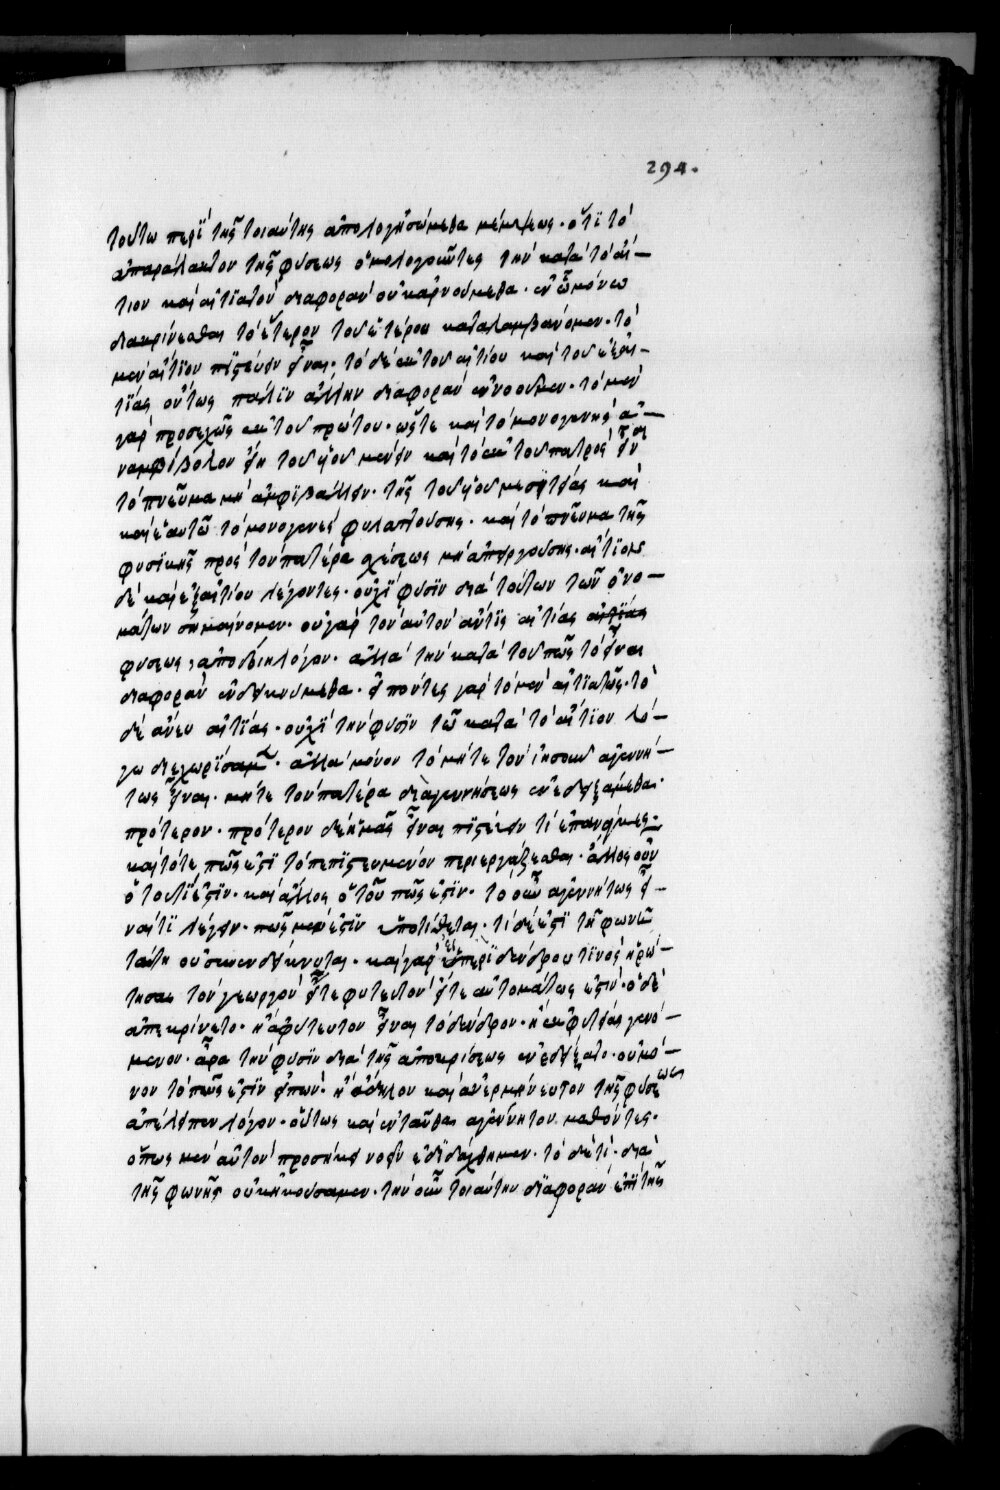 294.
τούτω περὶ τῆς τοιαύτης ἀπολογησώμεθα μέμψεως· ὅτι τὸ
ἀπαράλλακτον τῆς φύσεως ὁμολογοῦντες τὴν κατὰ τὸ αἴ-
τιον καὶ αἰτιατὸν διαφορὰν οὐκ ἀρνούμεθα· ἐν ᾧ μόνω
διακρίνεσθαι τὸ ἕτερον τοῦ ἑτέρου καταλαμβάνομεν· τῷ
μὲν αἴτιον πιστεύειν εἶναι· τὸ δὲ ἐκ τοῦ αἰτίου καὶ τοῦ ἐξ αἰ-
τίας ὄντως πάλιν ἄλλην διαφορὰν ἐννοοῦμεν· τὸ μὲν
γὰρ προσεχῶς ἐκ τοῦ πρώτου· ὥστε καὶ τὸ μονογενὲς ἀ-
ναμφίβολον ἐπὶ τοῦ υἱοῦ μένειν καὶ τὸ ἐκ τοῦ πατρὸς εἶναι
τὸ πνεῦμα μὴ ἀμφιβάλλειν· τῆς τοῦ υἱοῦ μεσιτείας καὶ
καὶ ἑαυτῷ τὸ μονογενὲς φυλαττούσης· καὶ τὸ πνεῦμα τῆς
φυσικῆς πρὸς τὸν πατέρα σχέσεως μὴ ἀπειργούσης· αἴτιον
δὲ καὶ ἐξ αἰτίου λέγοντες· οὐχὶ φύσιν διὰ τούτων τῶν ὀνο-
μάτων σημαίνομεν· οὐ γὰρ τὸν αὐτὸν ἄν τις αἰτίας αἰτίας
φύσεως, ἀποδίη λόγον· ἀλλὰ τὴν κατὰ τοῦ πῶς τὸ εἶναι
διαφορὰν ἐνδεικνύμεθα· εἰπόντες γὰρ τὸ μὲν αἰτιατῶς· τὸ
δὲ ἄνευ αἰτίας· οὐχὶ τὴν φύσιν τῷ κατὰ τὸ αἴτιον λό-
γω διεχωρίσαμεν· ἀλλὰ μόνον τὸ μήτε τὸν ἀγεννή-
τως εἶναι· μήτε τὸν πατέρα διὰ γεννήσεως ἐνεδειξάμεθα·
πρότερον· πρότερον δὲ ἡμᾶς εἶναι πιστεύειν τι ἐπάναγκες·
καὶ τότε πῶς ἐστι τὸ πεπιστευμένον περιεργάζεσθαι· ἄλλος οὖν
ὁ τοῦ τί ἐστιν· καὶ ἄλλος ὁ τοῦ πῶς ἐστιν· τὸ οὖν ἀγεννήτως εἶ-
ναί τι λέγειν· πῶς μὲν ἐστιν ὑποτίθεται· τί δέ ἐστι τῇ φωνῇ
ταύτη οὐ συνενδείκνυται· καὶ γὰρ εἰ περὶ δένδρου τινὸς ἠρώ-
τησας τὸν γεωργὸν εἴτε φυτευτὸν εἴτε αὐτομάτως ἐστίν· ὁ δὲ
ἀπεκρίνετο· ἢ ἀφύτευτον εἶναι τὸ δένδρον· ἢ ἐκ φυτείας γενό-
μενον· ἆρα τὴν φύσιν διὰ τῆς ἀποκρίσεως ἐνεδείξατο· οὐ μό-
νον τὸ πῶς ἐστιν εἰπών· ἢ ἄδηλον καὶ ἀνερμήνευτον τῆς φύσεως
ἀπέλειπεν λόγον· οὕτως καὶ ἐνταῦθα ἀγέννητον μαθόντες·
ὅπως μὲν αὐτὸν προσήκει νοεῖν ἐδιδάχθημεν· τὸ δὲ τί· διὰ
τῆς φωνῆς οὐκ ἠκούσαμεν· τὴν οὖν τοιαύτην διαφορὰν ἐπὶ τῆς